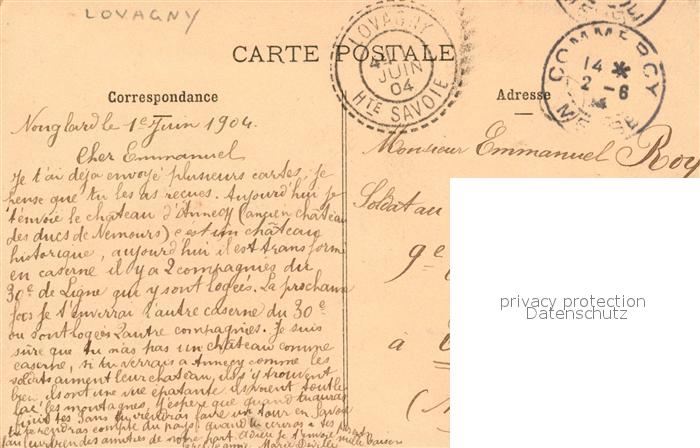 LOVAGNY
CARTE POSTALE
LOVAGNY
JUIN
04
HTE SAVOIE
COMMERCY
14 *
2 - 6
Correspondance
Adresse
Nonglard le 1er Juin 1904.
Cher Emmanuel
Je t'ai déja envoyé plusieurs cartes, je
pense que tu les as reçues. Aujourd'hui je
t'envoie le château d'Annecy (ancien château
des ducs de Nemours) c'est un château
historique, aujourd'hui il est transformé
en caserne il y a 2 compagnies du
30e de Ligne qui y sont logées. La prochaine
fois je t'enverrai l'autre caserne du 30e
ou sont logées 2 autre compagnies. Je suis
sûre que tu n'as pas un château comme
caserne, si tu verrais a Annecy comme les
soldats aiment leur château, ils s'y trouvent
bien, ils ont une vue épatante ils voient tout le
lac les montagnes, j'espère que quand tu auras
fini tes 3 ans tu viendras faire un tour en Savoie
tu te rendras compte du pays quand tu
des amitiés de notre part
Monsieur Emmanuel Roy
Soldat au
9e
à
privacy protection
Datenschutz